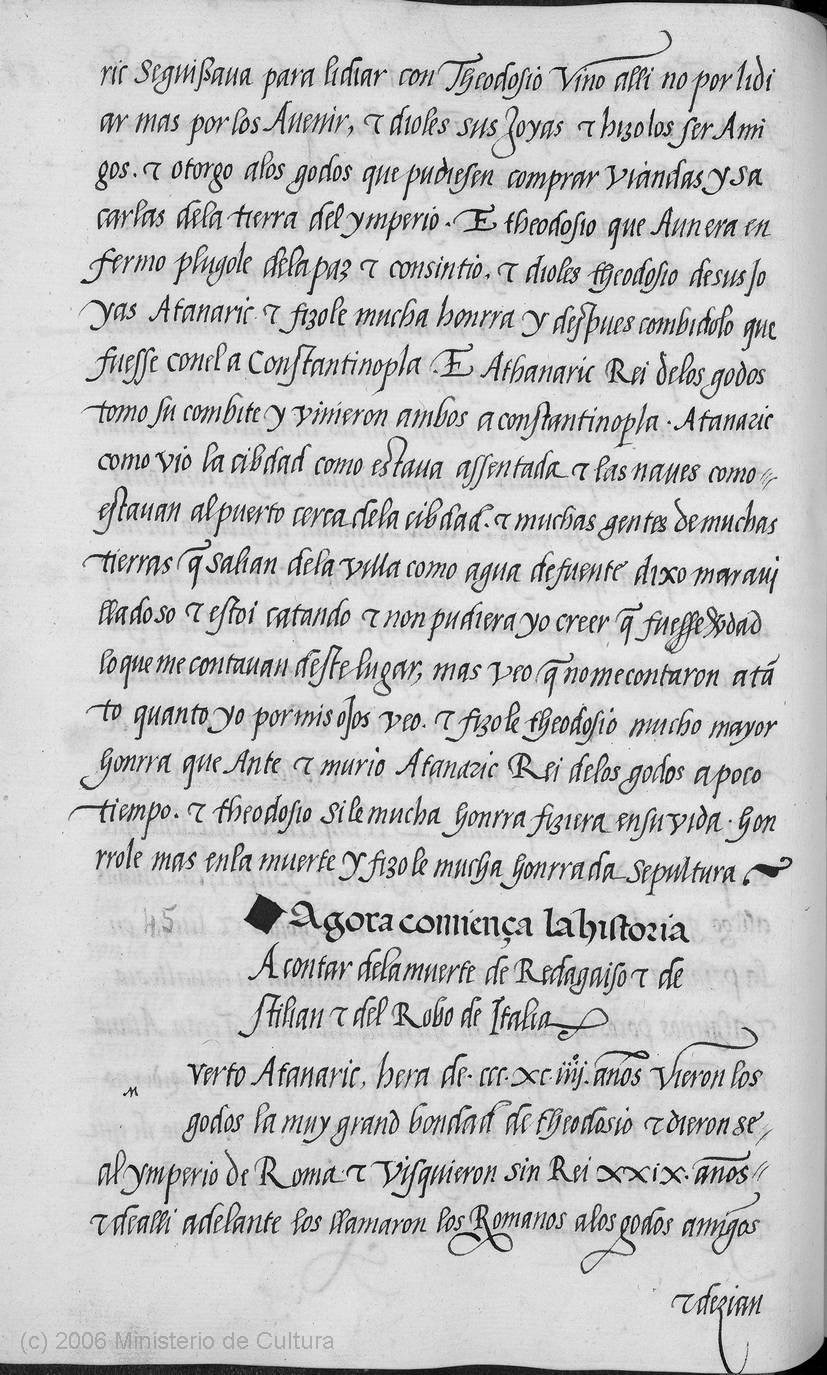 ric Seguißaua para lidiar con Theodosio Vino alli no por lidi
ar mas por los Auenir, τ dioles sus Joyas τ hizolos ser Ami
gos. τ otorgo alos godos que pudiesen comprar viandas y sa
carlas dela tierra del ymperio. E theodosio que Aun era en
fermo plugole dela paz τ consintio, τ dioles theodosio de sus Jo
yas Atanaric τ fizole mucha honrra y despues combidolo que
fuesse conel a Constantinopla. E Athanaric Rei delos godos
tomo su combite y vinieron ambos a constantinopla. Atanaric
como vio la cibdad como estaua assentada τ las naues como
estauan al puerto cerca dela cibdad. τ muchas gentes de muchas
tierras q̃ salian dela villa como agua de fuente dixo maraui
llado so τ estoi catando τ non pudiera yo creer q̃ fuesse vdad
lo que me contauan deste lugar, mas veo q̃ no me contaron atã
to quanto yo por mis ojos veo. τ fizole theodosio mucho mayor
honrra que Ante τ murio Atanaric Rei delos godos a poco
tiempo. τ theodosio si le mucha honrra fiziera en su vida. hon
rrole mas enla muerte y fizole mucha honrrada sepultura.
45
Agora comiença la historia
A contar dela muerte de Redagaiso τ de
stilian τ del Robo de Italia
M
verto Atanaric, hera de. ccc. xc. iiij. años Vieron los
godos la muy grand bondad de theodosio τ dieron se
al ymperio de Roma τ visquieron sin Rei xxix. años
τ dealli adelante los llamaron los Romanos alos godos amigos
τ dezian
(c) 2006 Ministerio de Cultura